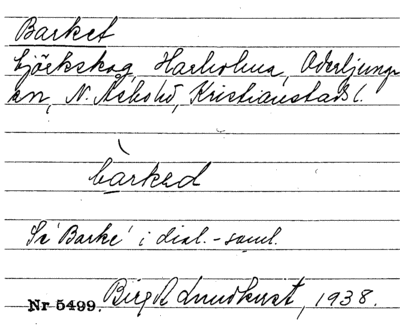 Barket
björkskog, Harholma, Oderljunga
sn, N. Åsbo hd, Kristianstads l.
bàrkəd
Se 'Barke' i dial.-saml.
Nr 5499. Birgit Lundkvist, 1938.